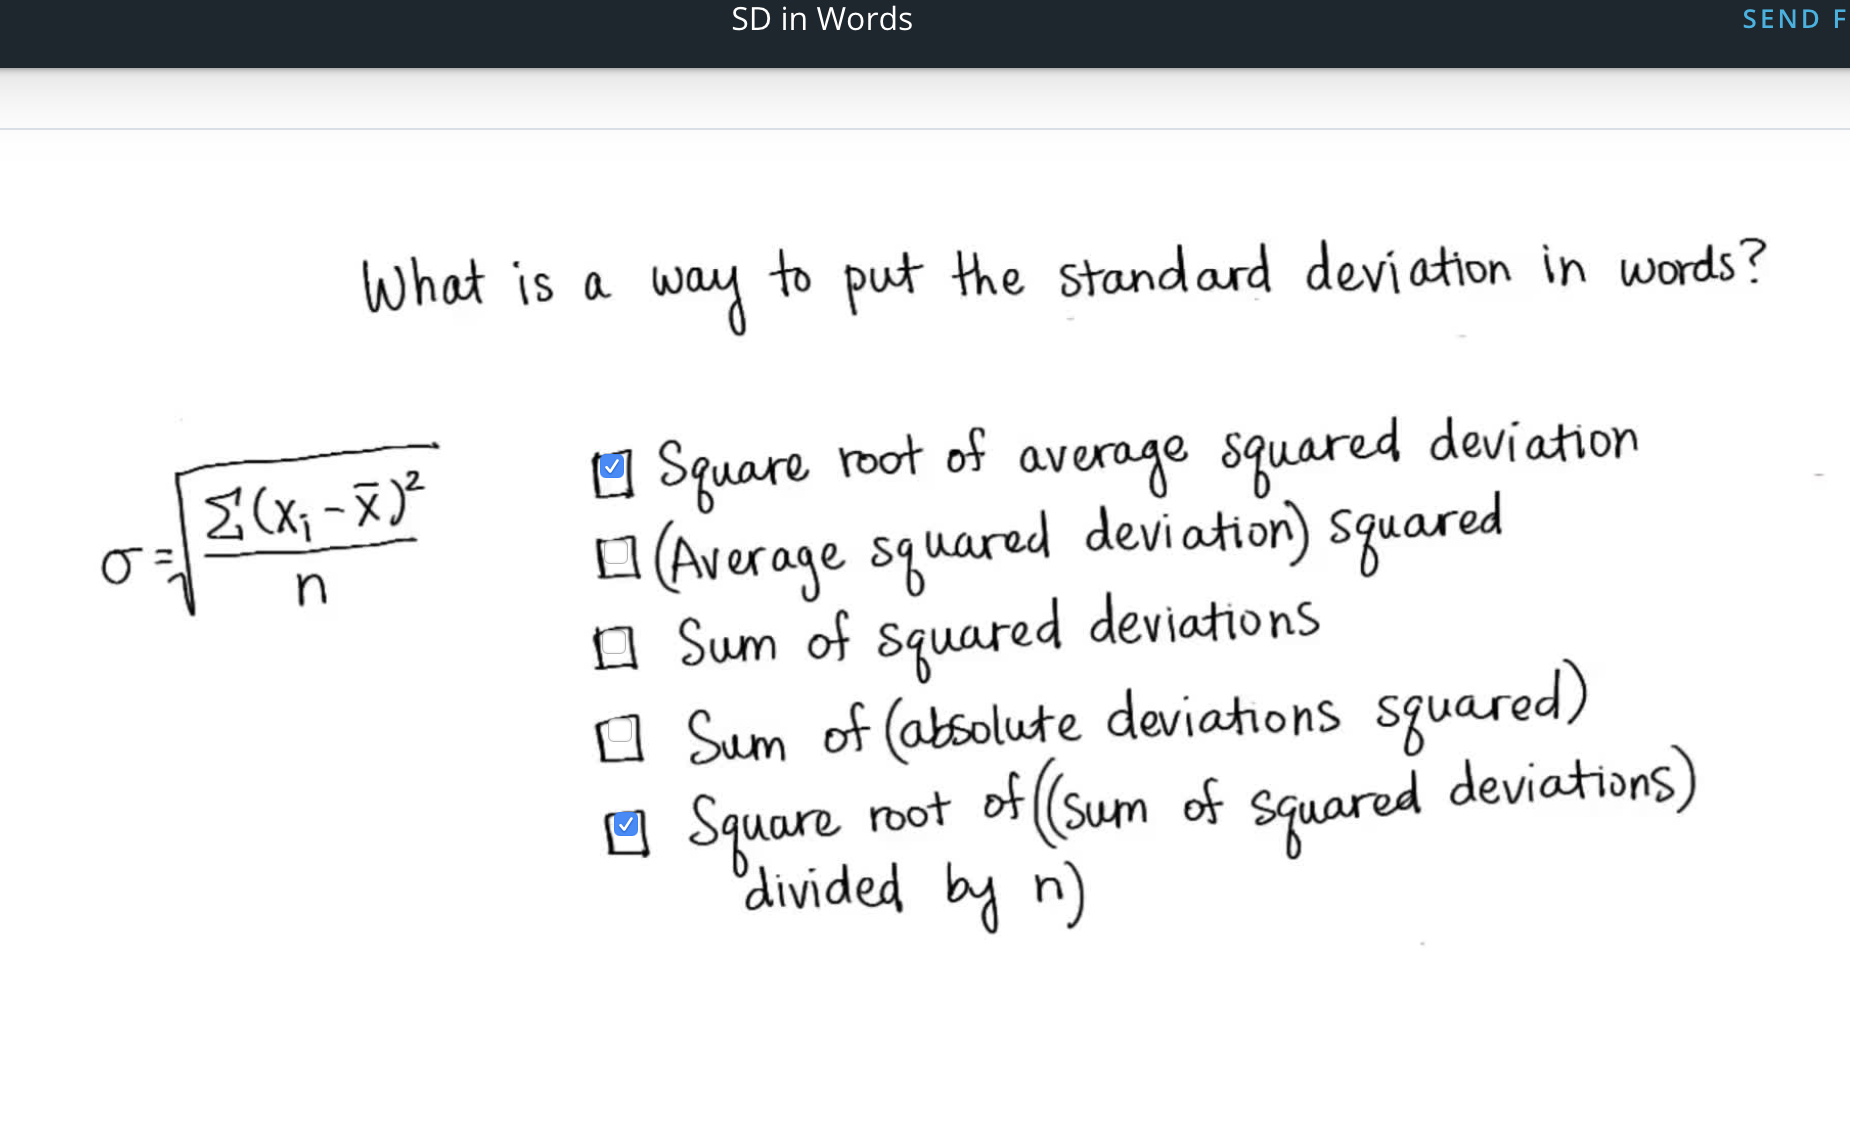 SD in Words
SEND F
What is a way to put the standard deviation in words?
σ = √(Σ(xᵢ - x̄)² / n)
Square root of average squared deviation
(Average squared deviation) squared
Sum of squared deviations
Sum of (absolute deviations squared)
Square root of ((sum of squared deviations)
divided by n)